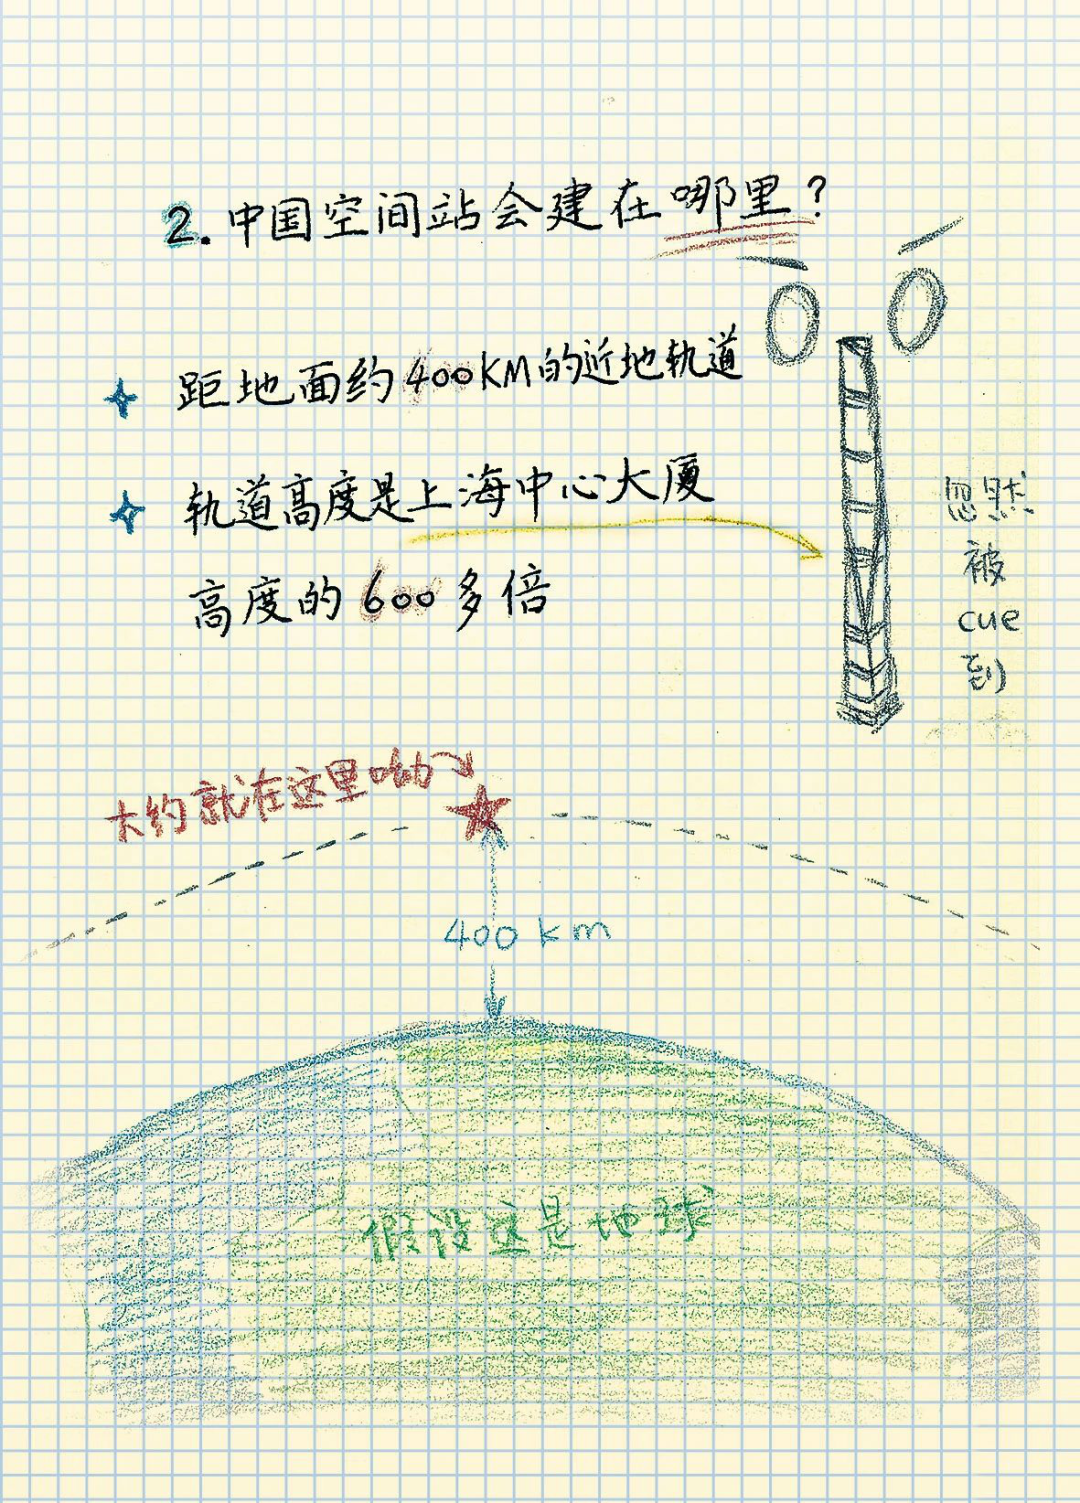 2.中国空间站会建在哪里?
距地面约400KM的近地轨道
轨道高度是上海中心大厦
高度的600多倍
忽然
被
cue
到
大约就在这里呦
400km
假设这是地球